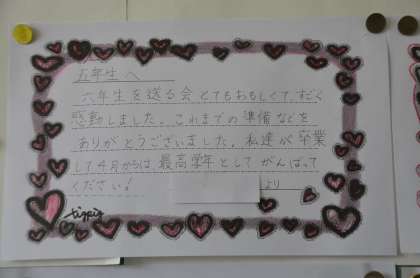 五年生へ
六年生を送る会とてもおもしくて、すごく
感動しました。これまでの準備などを
ありがとうございました。私達が卒業
して4月からは、最高学年としてがんばって
ください!
より